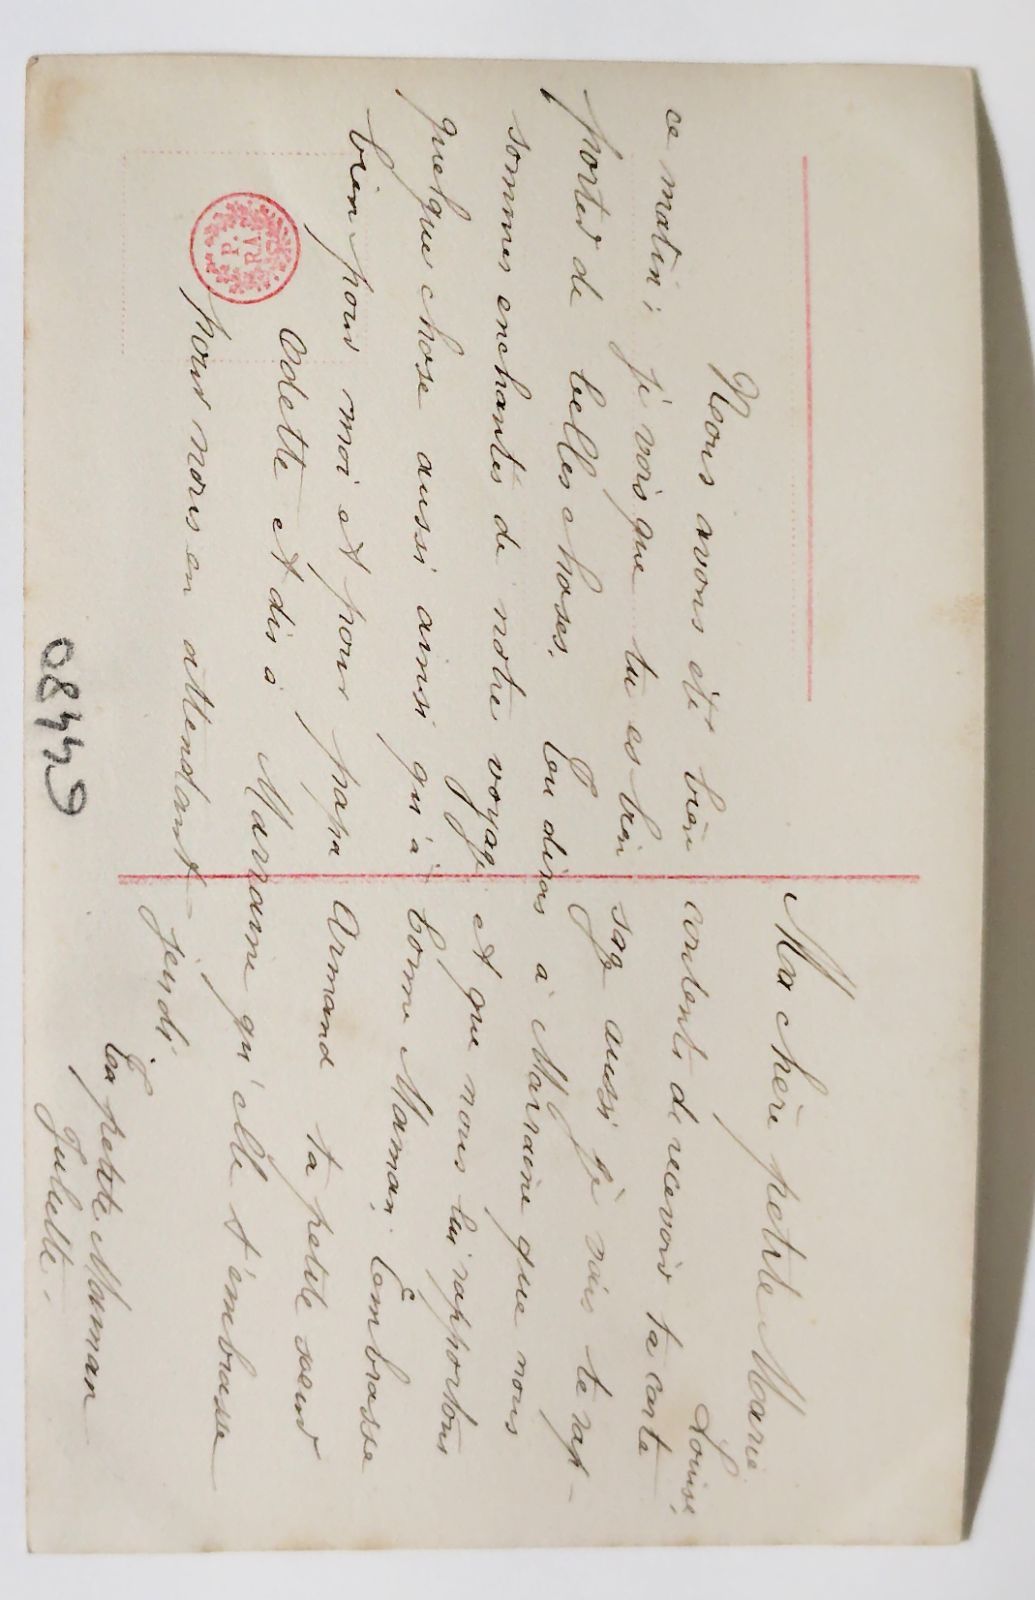 Ma chère petite Marie
Louise,
Nous avons été bien contents de recevoir ta carte
ce matin; je vois que tu es bien sage aussi je vais te rap-
porter de belles choses. Tu diras à Marraine que nous
sommes enchantés de notre voyage et que nous lui rapportons
quelque chose aussi ainsi qu'à bonne Maman. Embrasse
bien pour moi et pour papa Armand ta petite sœur
Odette et dis à Marraine qu'elle t'embrasse
pour nous en attendant jeudi.
Ta petite Maman
Juliette.
P.
RA